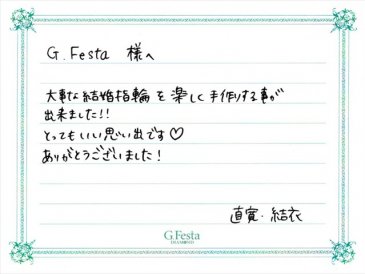 G.Festa 様へ
大事な結婚指輪を楽しく手作りする事が
出来ました!!
とってもいい思い出です♡
ありがとうございました!
直寛・結衣
G.Festa
DIAMOND